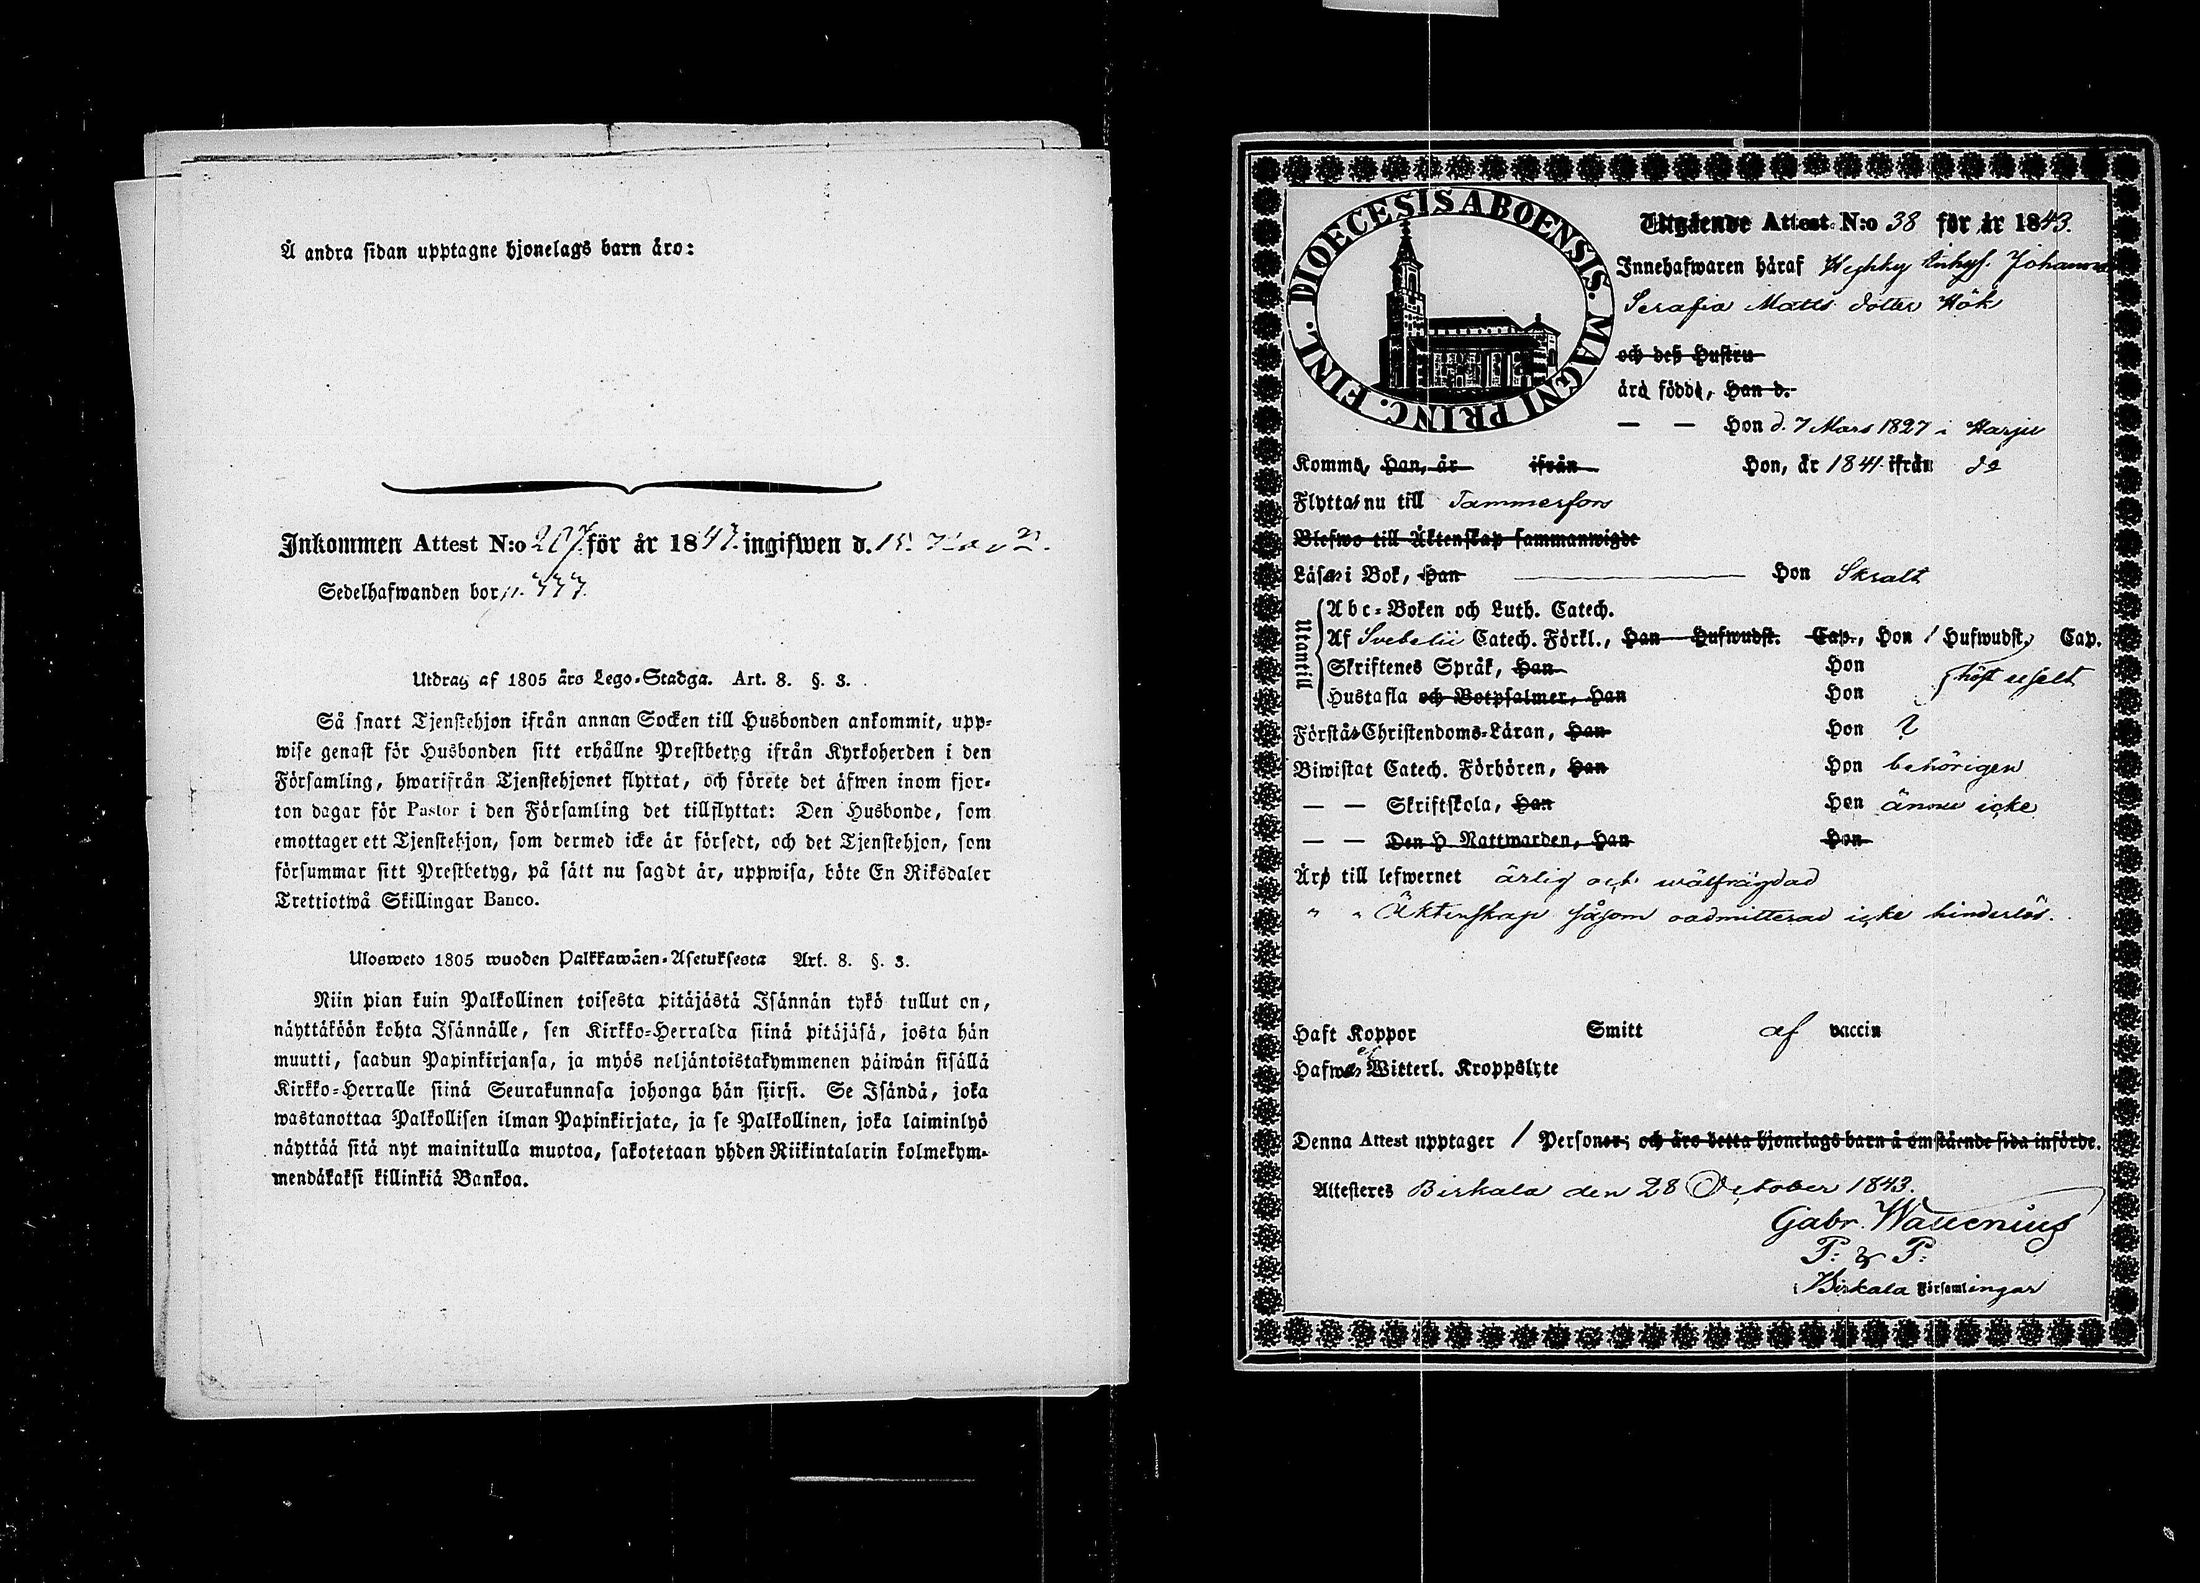 Å andra sidan upptagne hjonelags barn äro:
Inkommen Attest N:o 207 för år 1843. ingifwen d. 15.
Sedelhafwanden bor p. 777.
Utdrag af 1805 års Lego-Stadga. Art. 8. §. 3.
Så snart Tjenstehjon ifrån annan Socken till Husbonden ankommit, upp-
wise genast för Husbonden sitt erhållne Prestbetyg ifrån Kyrkoherden i den
Församling, hwarifrån Tjenstehjonet flyttat, och förete det äfwen inom fjor-
ton dagar för Pastor i den Församling det tillflyttat: Den Husbonde, som
emottager ett Tjenstehjon, som dermed icke är försedt, och det Tjenstehjon, som
försummar sitt Prestbetyg, på sätt nu sagdt är, uppwisa, böte En Riksdaler
Trettiotwå Skillingar Banco.
Uloswеto 1805 wuoden Palkkawäen-Asetuksesta Art. 8. §. 3.
Niin pian kuin Palkollinen toisesta pitäjästä Isännän tykö tullut on,
näyttäköön kohta Isännälle, sen Kirkko-Herralda siinä pitäjäsä, josta hän
muutti, saadun Papinkirjansa, ja myös neljäntoistakymmenen päiwän sisällä
Kirkko-Herralle siinä Seurakunnasa johonga hän siirsi. Se Isändä, joka
wastanottaa Palkollisen ilman Papinkirjata, ja se Palkollinen, joka laiminlyö
näyttää sitä nyt mainitulla muotoa, sakotetaan yhden Riikintalarin kolmekym-
mendäkaksi killinkiä Bankoa.
DIOECESIS ABOENSIS. MAGNI PRINC. FINL.
Utgående Attest N:o 38 för år 1843.
Innehafwaren häraf Hyhky Inhys. Johanna
Serafia Matts dotter Hök
och deß Hustru
äro födde, Han d.
— — Hon d. 7 Mars 1827 i Harju
Komma, Han, år ifrån Hon, år 1841. ifrån do
Flyttar nu till Tammerfors
Blefwo till Äktenskap sammanwigde
Läsa i Bok, Han Hon Skralt
Utantill
Abc-Boken och Luth. Catech.
Af Svebelii Catech. Förkl., Han Hufwudst. Cap., Hon 1 Hufwudst, Cap.
Skriftenes Språk, Han Hon
Hustafla och Botpsalmer, Han Hon höst uselt
Förstår Christendoms-Läran, Han Hon ?
Biwistat Catech. Förhören, Han Hon behörigen
— — Skriftskola, Han Hon ännu icke
— — Den H. Nattwarden, Han Hon
Äro till lefwernet ärlig och wälfrägdad
" " Äktenskap såsom oadmitterad icke hinderlös.
Haft Koppor Smitt af vaccin
Hafwa ej Witterl. Kroppslyte
Denna Attest upptager 1 Personer; och äro detta hjonelags barn å omstående sida införde.
Attesteres Birkala den 28 October 1843.
Gabr. Wallenius
P: & P:
i Birkala Församlingar